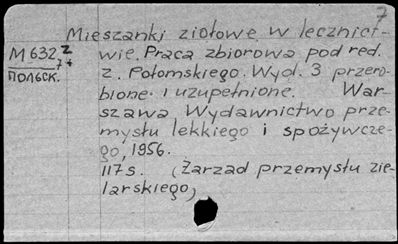 7
Mieszanki ziołowe w lecznict-
M632 z
wie. Praca zbiorowa pod red.
7+
польск.
z. Potomskiego. Wyd. 3 przero-
bione i uzupełnione. War-
szawa Wydawnictwo prze-
mysłu lekkiego i spożywcze-
go, 1956.
117 s. (Zarzad przemysłu zie-
larskiego)